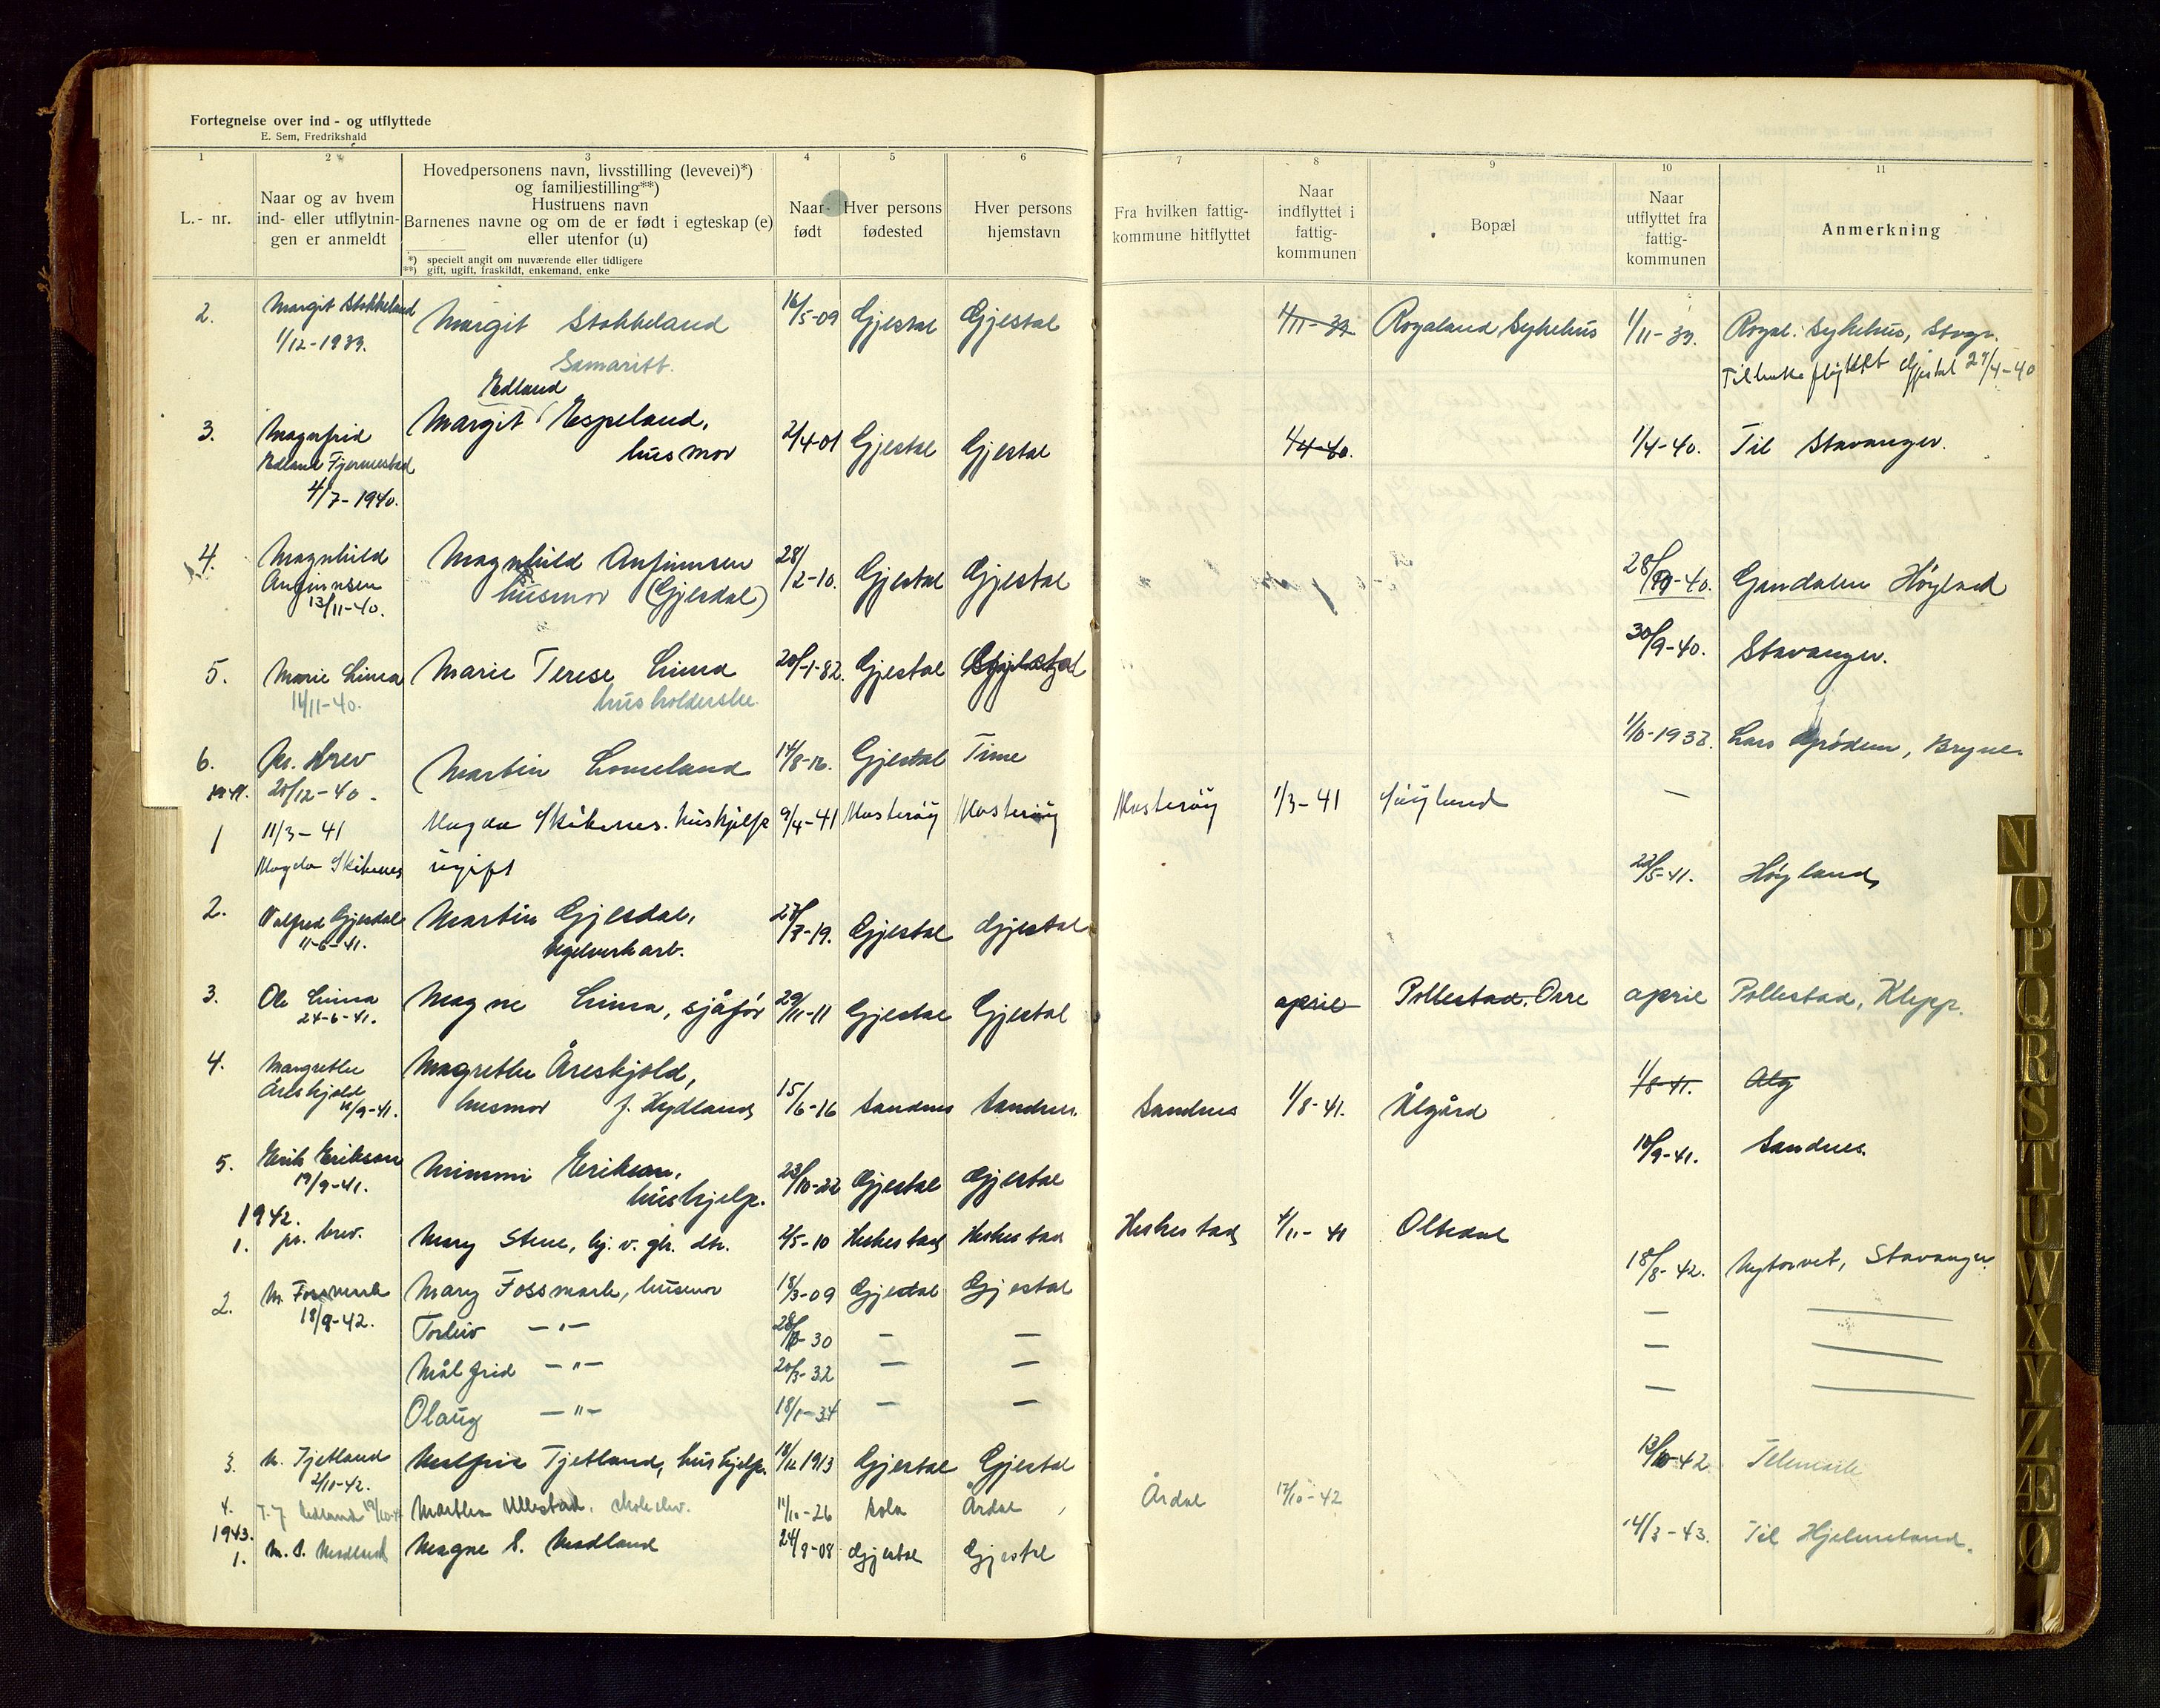 Fortegnelse over ind- og utflyttede
E. Sem, Fredrikshald
1 2 3 4 5 6 7 8 9 10 11
L.- nr.
Naar og av hvem
ind- eller utflytnin-
gen er anmeldt
Hovedpersonens navn, livsstilling (levevei)*)
og familiestilling**)
Hustruens navn
Barnenes navne og om de er født i egteskap (e)
eller utenfor (u)
*) specielt angit om nuværende eller tidligere
**) gift, ugift, fraskildt, enkemand, enke
Naar
født
Hver persons
fødested
Hver persons
hjemstavn
Fra hvilken fattig-
kommune hitflyttet
Naar
indflyttet i
fattig-
kommunen
Bopæl
Naar
utflyttet fra
fattig-
kommunen
Anmerkning
2. Margit Stokkeland Margit Stokkeland 16/5-09 Gjestal Gjestal 1/11-39 Rogaland Sykehus 1/11-39. Rogal. Sykehus, Stvgr.
1/12-1939. Samaritt. Tilbake flyttet Gjestal 27/4-40
Edland
3. Magnfrid Margit Espeland, 2/4-01 Gjestal Gjestal 1/4-40. 1/4-40. Til Stavanger.
Edland Fjermestad husmor
4/7-1940.
4. Magnhild Magnhild Anfinnsen 28/2-10. Gjestal Gjestal 28/10-40. Gandalen Høyland
Anfinnsen husmor (Gjesdal)
13/11-40.
5. Marie Lima Marie Terese Lima 20/1-82. Gjestal Gjestal 30/9-40. Stavanger.
14/11-40. husholderske.
6. Pr. brev Martin Lomeland 14/8-16. Gjestal Time 1/10-1938. Lars Grødem, Bryne.
20/12-40.
1 11/3-41 Magda Skibenes. hushjelp 9/4-41 Mosterøy Mosterøy Mosterøy 1/3-41 —
Magda Skibenes ugift
2. Valfred Gjesdal Martin Gjesdal, 27/7-19. Gjestal Gjestal 22/5-41. Høyland
11-6-41.
3. Ole Lima Magne Lima, sjåfør 29/11-11 Gjestal Gjestal april Pollestad, Orre april Pollestad, Klepp.
24-6-41.
4. Margrethe Magrethe Åreskjold, 15/6-16 Sandnes Sandnes Sandnes 1/8-41. Ålgård 1/8-41. Alg
Åreskjold husmor f. Hydland
5. Erik Erikson Mimmi Erikson, 23/10-22 Gjestal Gjestal 10/9-41. Sandnes.
19/9-41. hushjelp.
1942.
1. pr. brev. Mary Stene, hj. v. gh. dtr. 2/5-10 Heskestad Heskestad Heskestad 1/11-41 Oltedal
2. M. Fossmark Mary Fossmark, husmor 18/3-09 Gjestal Gjestal 18/8-42. Nytorvet, Stavanger
18/9-42. Torleiv —"— 28/10-30 — — — —
Målfrid —"— 20/3-32 — — — —
Olaug —"— 18/1-34 — — — —
3. M. Tjetland Malfrid Tjetland, hushjelp. 18/12 1913 Gjestal Gjestal 13/10-42 Telemark
2/10-42.
4. Marthea Ullestad. skoleelev. 11/10-26 Sola Årdal Årdal 17/10-42
1943.
1. M. S. Madland Magne S. Madland 24/9-08 Gjestal Gjestal 14/3-43. Til Hjelmeland.
N
O
P
Q
R
S
T
U
W
X
Y
Z
Æ
Ø